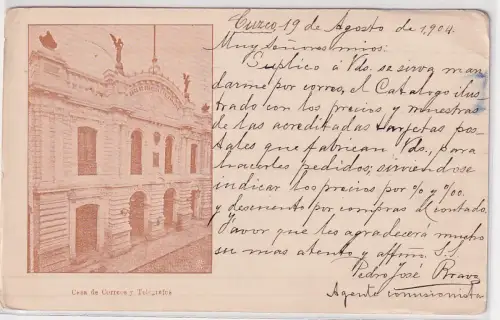 Cuzco, 19 de Agosto de 1,904.
Muy Señores mios:
Suplico á Vds. se sirva man
darme por correo, el Catalogo ilus
trado con los precios y muestras
de las acreditadas tarjetas pos-
tales que fabrican Vds., para
hacerles pedidos; sirviendose
indicar los precios por % y ‰
y descuento por compras al contado.
Favor que les agradecerá mucho
su mas atento y affmo. S.S.
Pedro José Bravo
Agente comisionista
Casa de Correos y Telegrafos